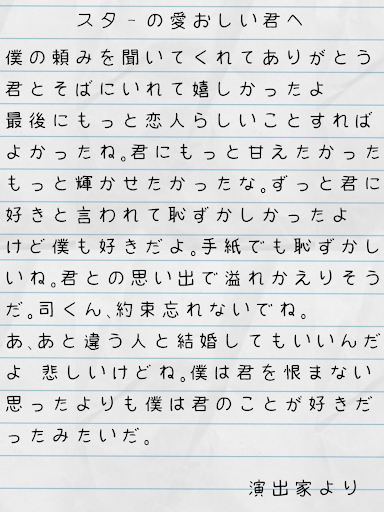 スタ-の愛おしい君へ
僕の頼みを聞いてくれてありがとう
君とそばにいれて嬉しかったよ
最後にもっと恋人らしいことすれば
よかったね。君にもっと甘えたかった
もっと輝かせたかったな。ずっと君に
好きと言われて恥ずかしかったよ
けど僕も好きだよ。手紙でも恥ずかし
いね。君との思い出で溢れかえりそう
だ。司くん、約束忘れないでね。
あ、あと違う人と結婚してもいいんだ
よ 悲しいけどね。僕は君を恨まない
思ったよりも僕は君のことが好きだ
ったみたいだ。
演出家より